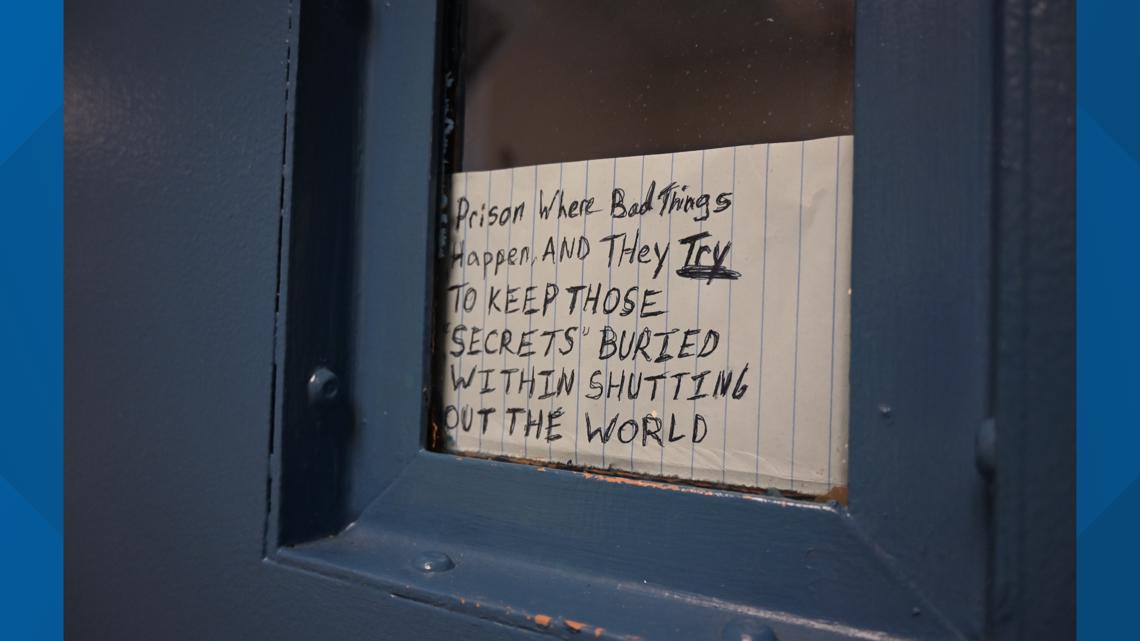 Prison Where Bad Things
Happen, AND THey Try
TO KEEP THOSE
"SECRETS" BURIED
WITHIN SHUTTING
OUT THE WORLD